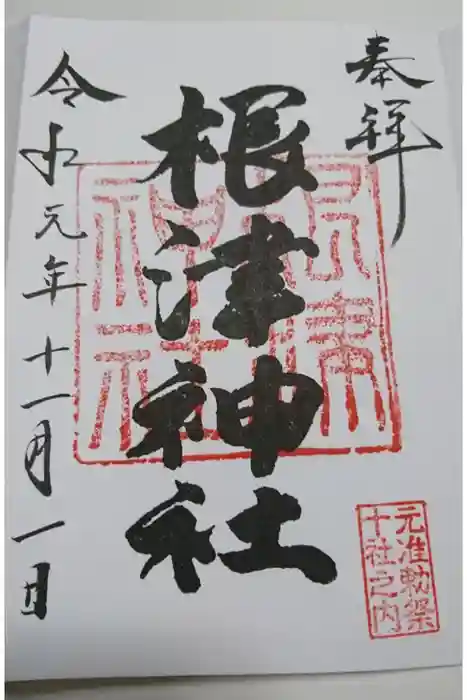 奉拝
根津神社
令和元年十一月一日
根津神社
元准勅祭
十社之内